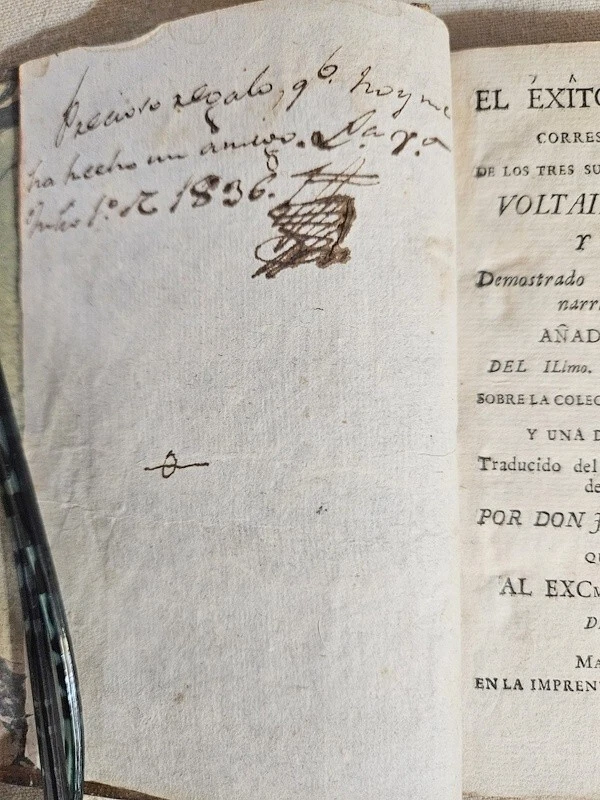 Precioso regalo, qe. hoy me
ha hecho un amigo.
Julio 1.º de 1836.
EL ÉXITO
CORRES
DE LOS TRES SU
VOLTAI
Y
Demostrado
narr
AÑAD
DEL ILmo.
SOBRE LA COLEC
Y UNA D
Traducido del
de
POR DON J
QU
AL EXCM
D
MA
EN LA IMPRENT